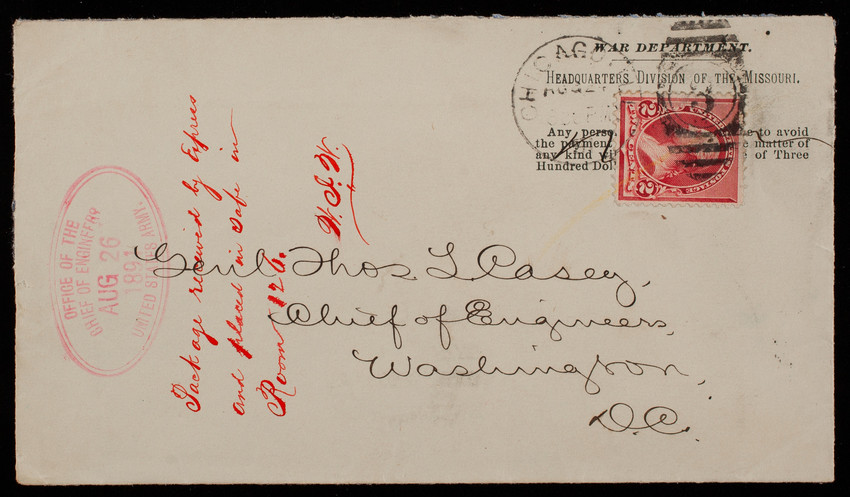 WAR DEPARTMENT.
HEADQUARTERS DIVISION OF THE MISSOURI.
Any to avoid
the payment matter of
any kind of Three
Hundred
CHICAGO
AUG 2
Genl Thos. L Casey,
Chief of Engineers,
Washington,
D.C.
Package received by Express
and placed in safe in
Room 126.
OFFICE OF THE
CHIEF OF ENGINEERS
AUG 26
1891
UNITED STATES ARMY.